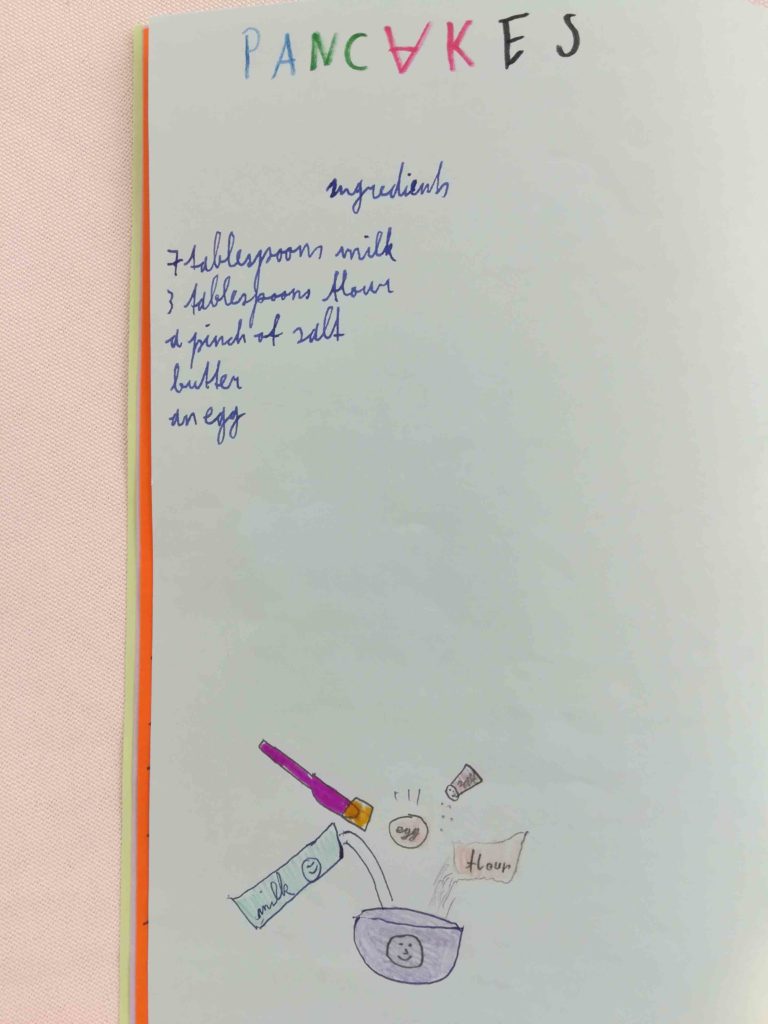 PANCAKES
ingredients
7 tablespoons milk
3 tablespoons flour
a pinch of salt
butter
an egg
egg
flour
milk